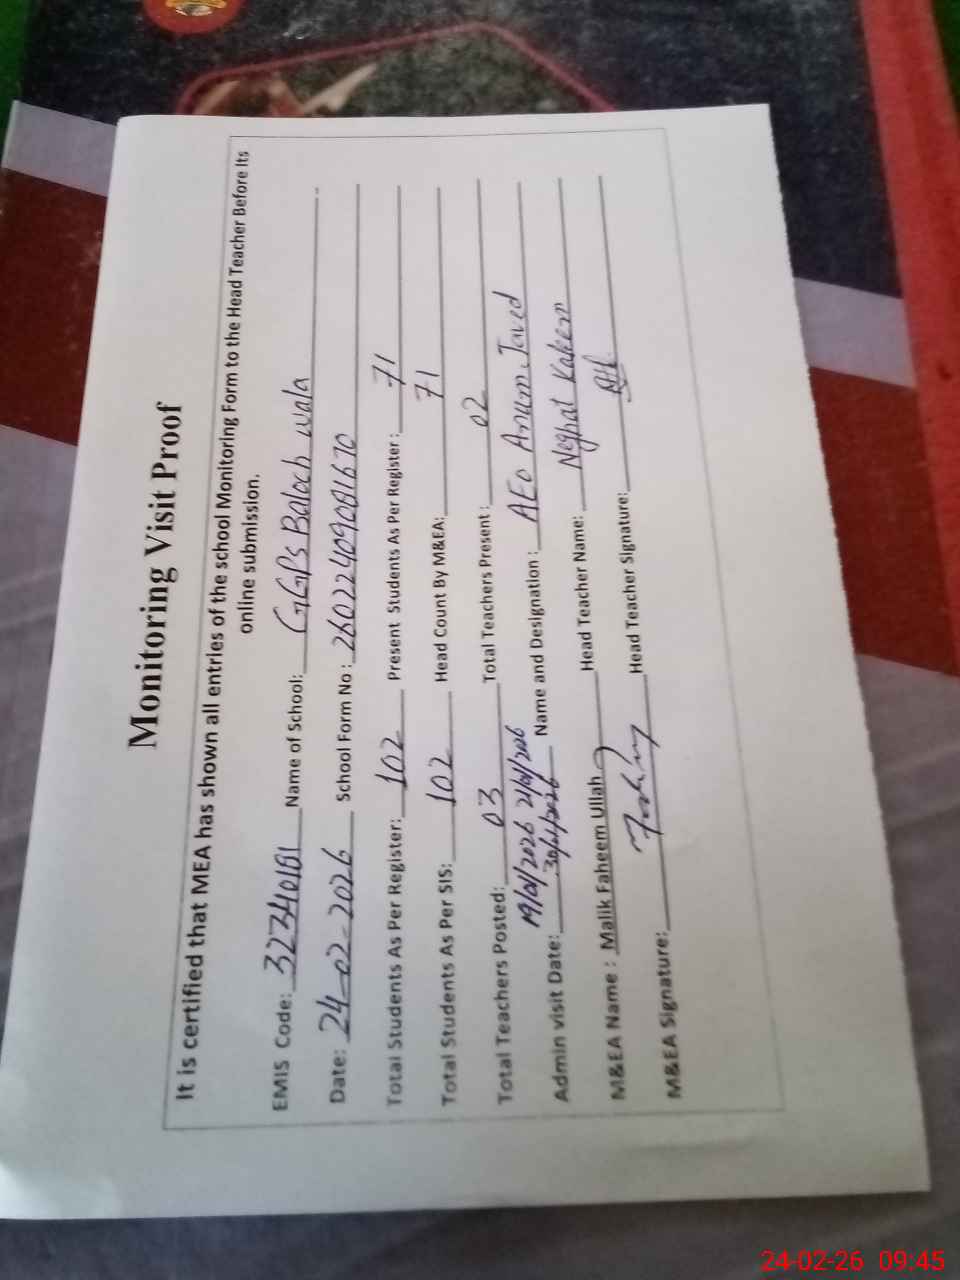 Monitoring Visit Proof
It is certified that MEA has shown all entries of the school Monitoring Form to the Head Teacher Before Its
online submission.
EMIS Code: 32340181 Name of School: GGPS Baloch wala
Date: 24-02-2026 School Form No : 26022409081670
Total Students As Per Register: 102 Present Students As Per Register : 71
Total Students As Per SIS: 102 Head Count By M&EA: 71
Total Teachers Posted: 03 Total Teachers Present : 02
19/01/2026 21/01/2026
Admin visit Date: 30/01/2026 Name and Designation : AEO Anum Javed
M&EA Name : Malik Faheem Ullah Head Teacher Name: Neghat Kakem
M&EA Signature: Head Teacher Signature:
24-02-26 09:45